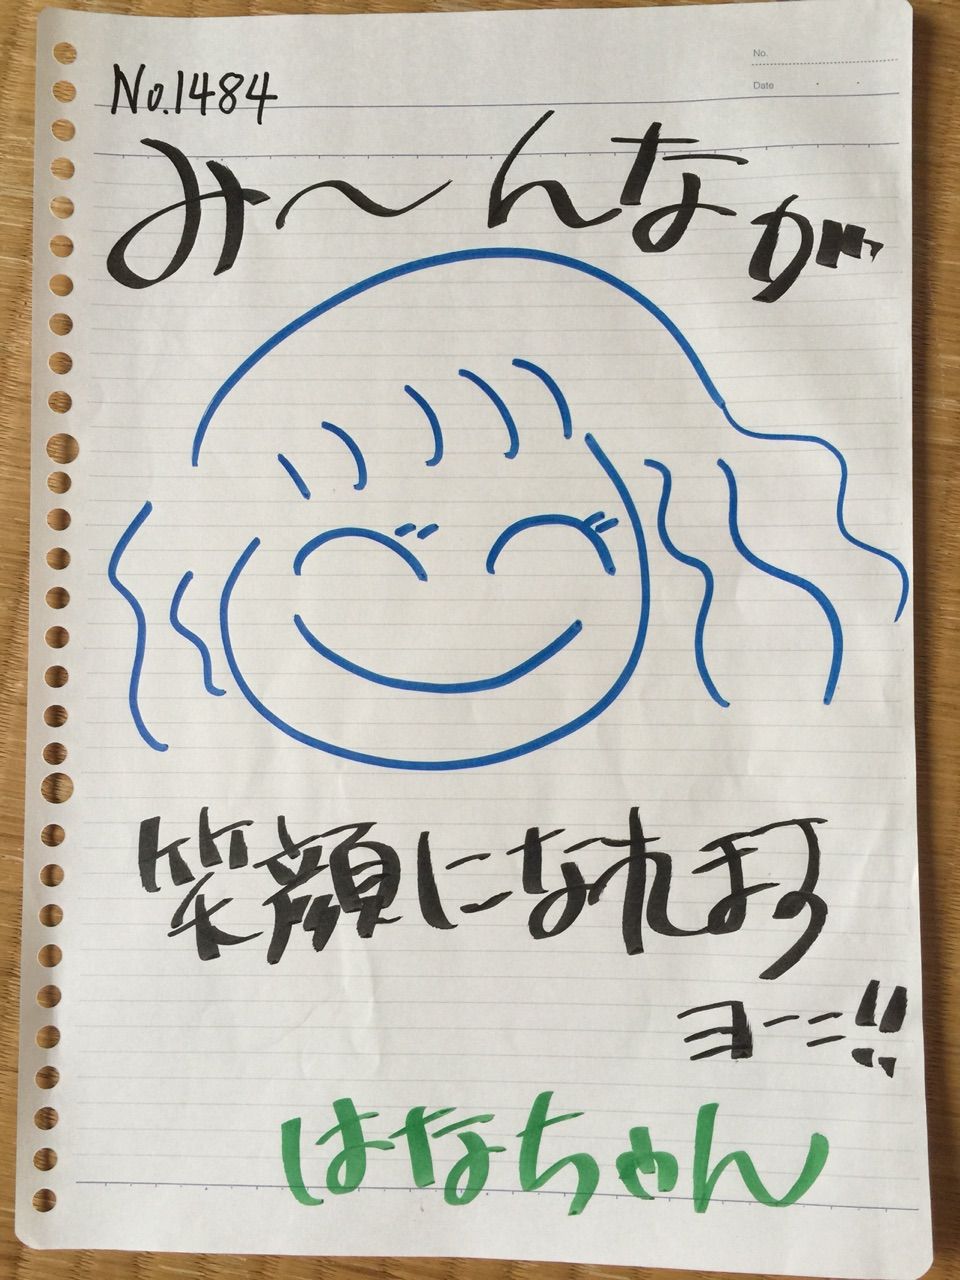 No.
Date
No.1484
み〜んなが
笑顔になれまろ
ヨーニ!!
はなちゃん